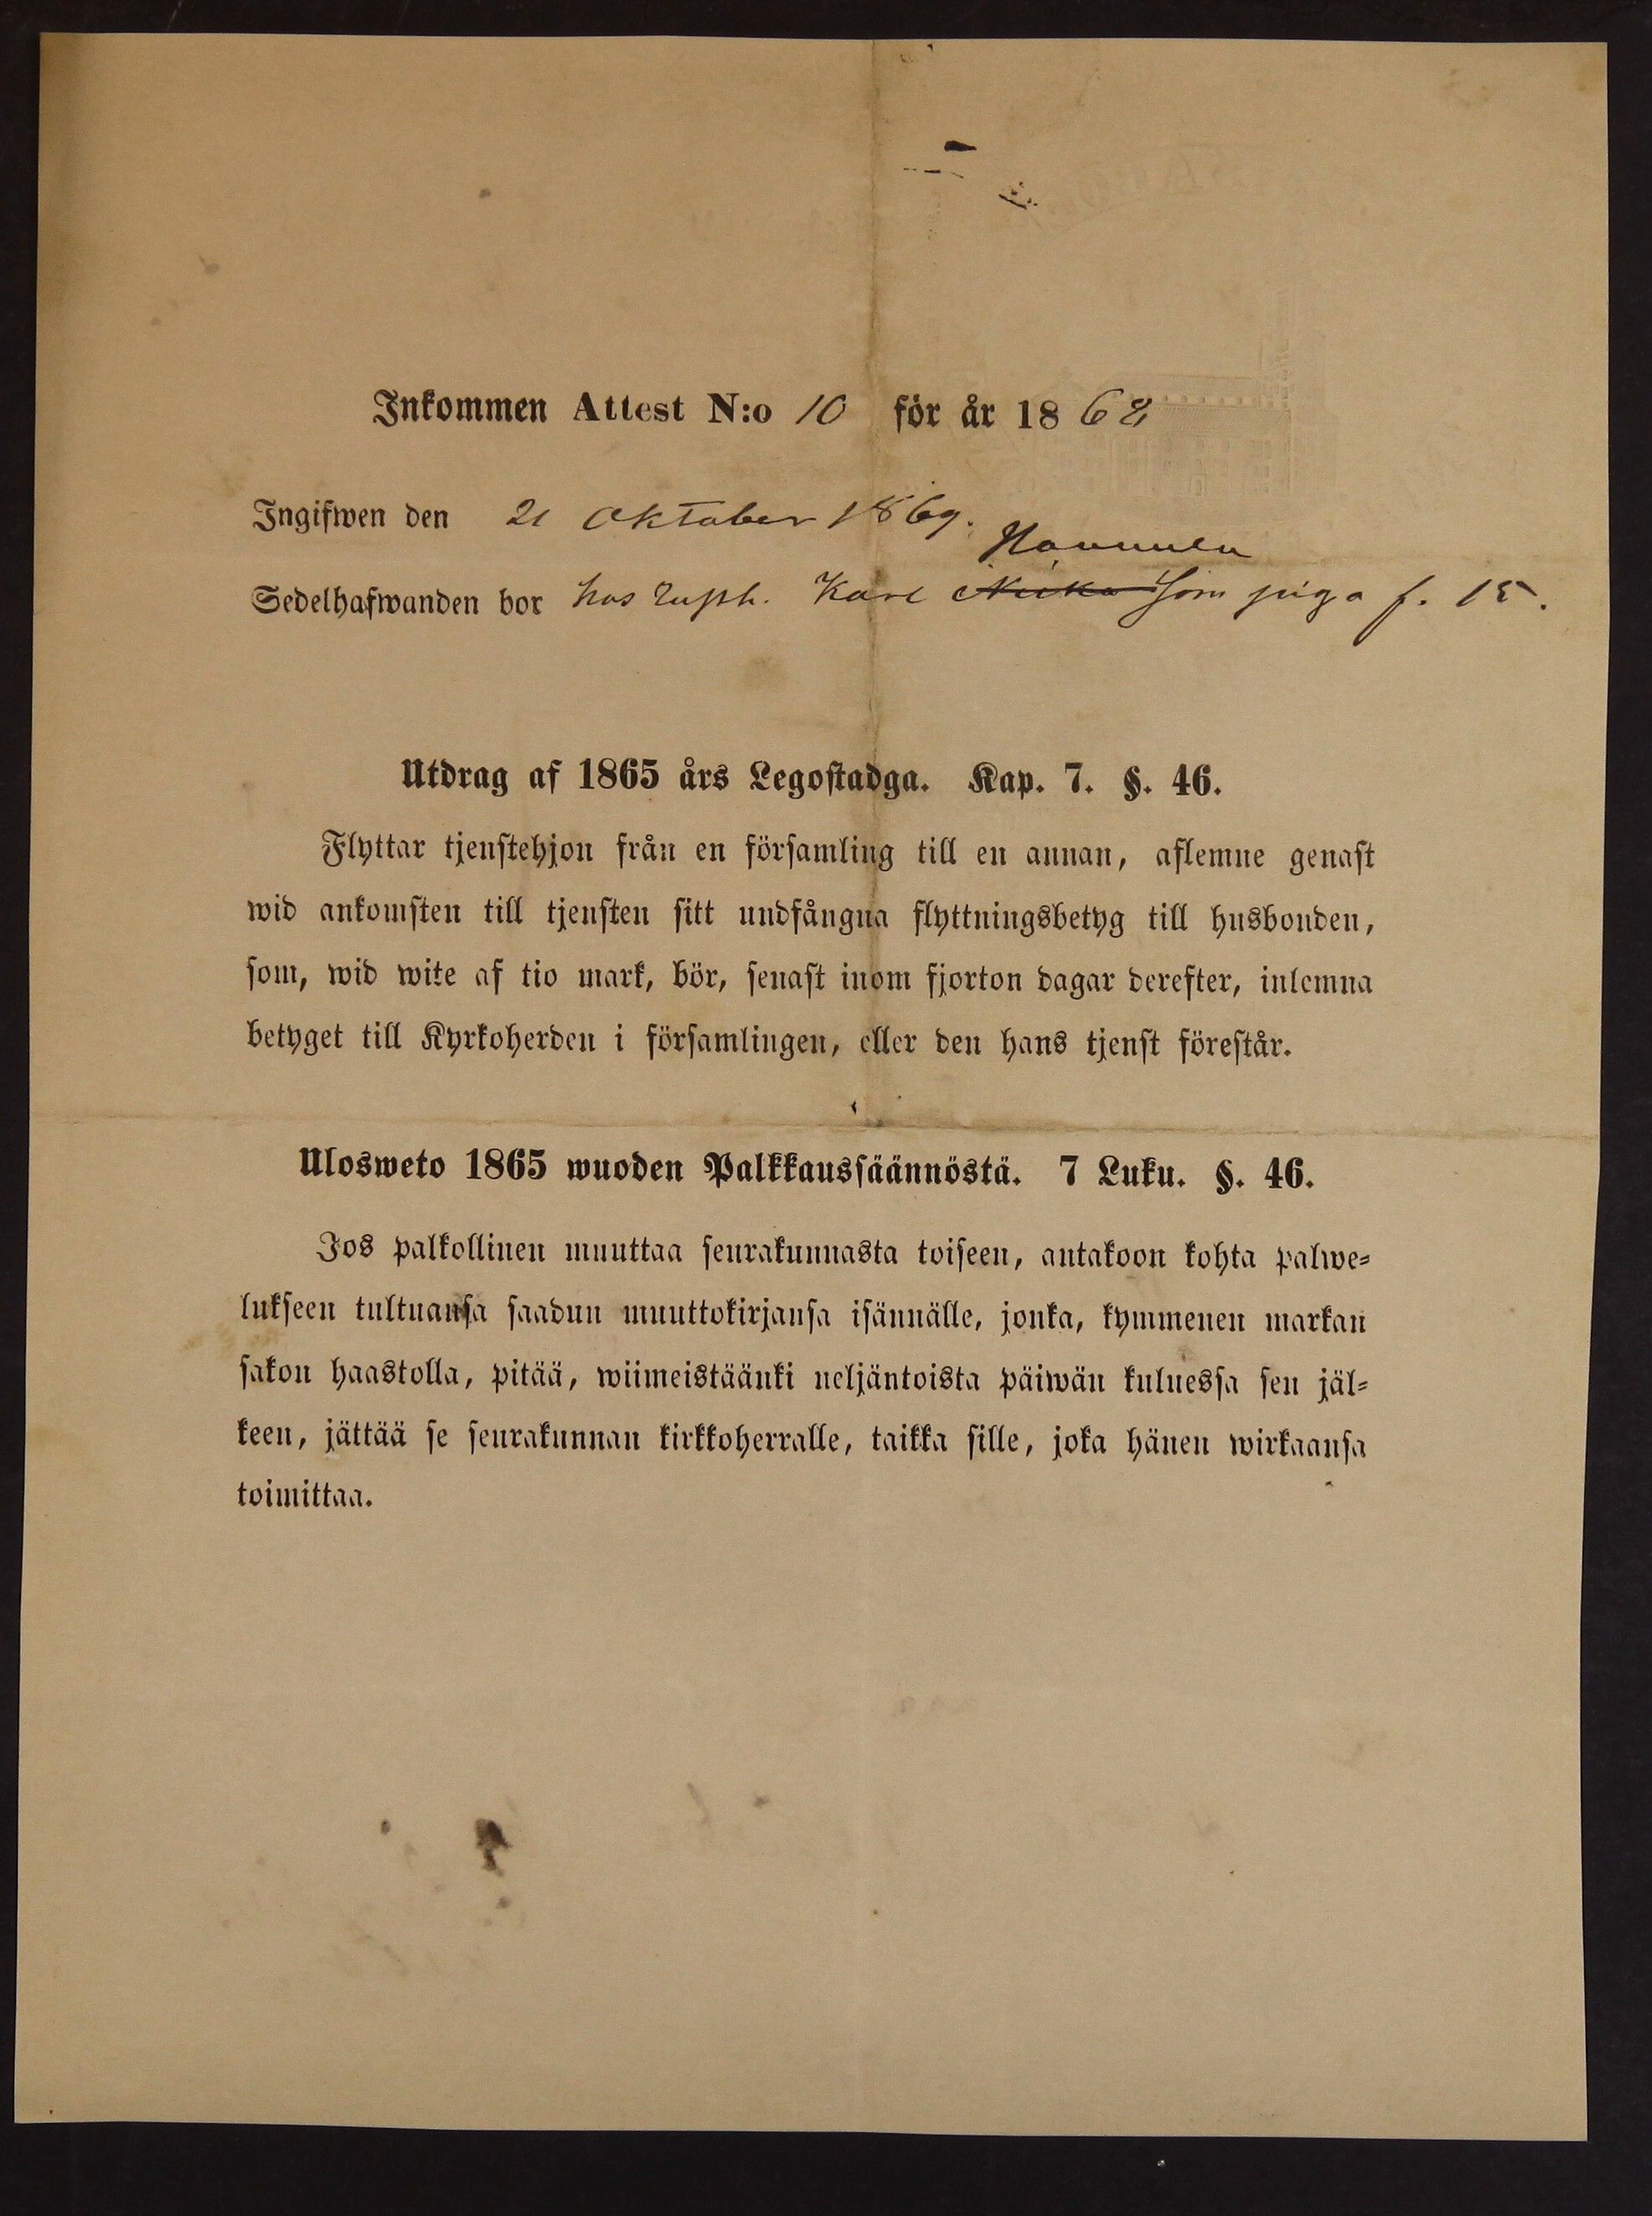 Inkommen Attest N:o 10 för år 1868
Ingifwen den 21 Oktober 1869.
Nouvulu
Sedelhafwanden bor hos Karl som piga f. 15.
Utdrag af 1865 års Legostadga. Kap. 7. §. 46.
Flyttar tjenstehjon från en församling till en annan, aflemne genast
wid ankomsten till tjensten sitt undfångna flyttningsbetyg till husbonden,
som, wid wite af tio mark, bör, senast inom fjorton dagar derefter, inlemna
betyget till Kyrkoherden i församlingen, eller den hans tjenst förestår.
Ulosweto 1865 wuoden Palkkaussäännöstä. 7 Luku. §. 46.
Jos palkollinen muuttaa seurakunnasta toiseen, antakoon kohta palwe-
lukseen tultuansa saadun muuttokirjansa isännälle, jonka, kymmenen markan
sakon haastolla, pitää, wiimeistäänki neljäntoista päiwän kuluessa sen jäl-
keen, jättää se seurakunnan kirkkoherralle, taikka sille, joka hänen wirkaansa
toimittaa.